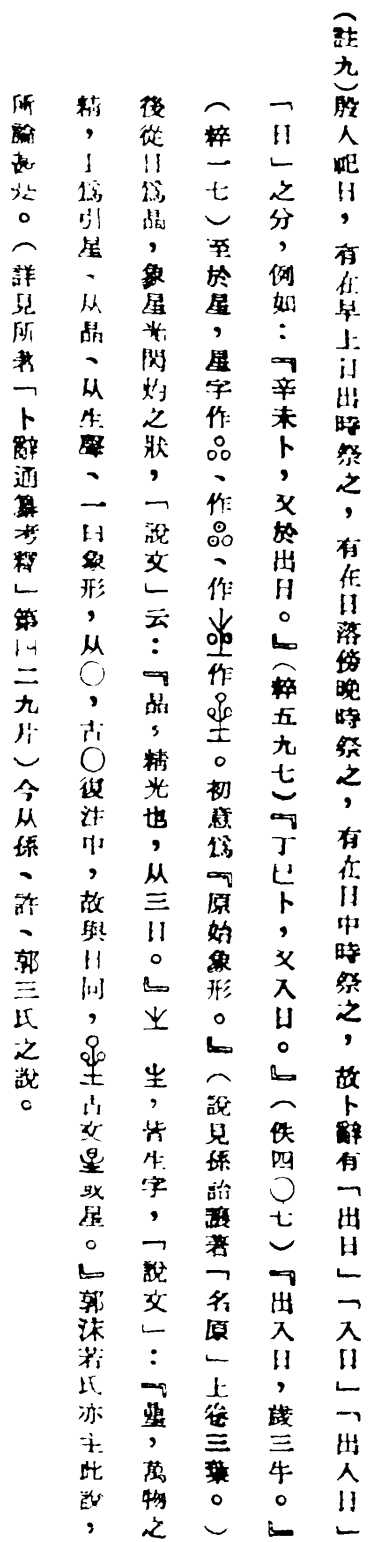 (註九)殷人祀日,有在早上日出時祭之,有在日落傍晚時祭之,有在日中時祭之,故卜辭有「出日」「入日」「出入日」
「日」之分,例如:『辛未卜,又於出日。』(粹五九七)『丁巳卜,又入日。』(佚四〇七)『出入日,歲三牛。』
(粹一七)至於星,星字作、作、作作。初意爲『原始象形。』(說見孫詒讓著「名原」上卷三葉。)
後從日爲晶,象星光閃灼之狀,「說文」云:『晶,精光也,从三日。』 ,皆生字,「說文」:『曐,萬物之
精,上爲列星、从晶、从生聲、一曰象形,从〇,古〇復注中,故與日同,古文星或星。』郭沫若氏亦主此說,
所論甚是。(詳見所著「卜辭通纂考釋」第四二九片)今从孫、許、郭三氏之說。